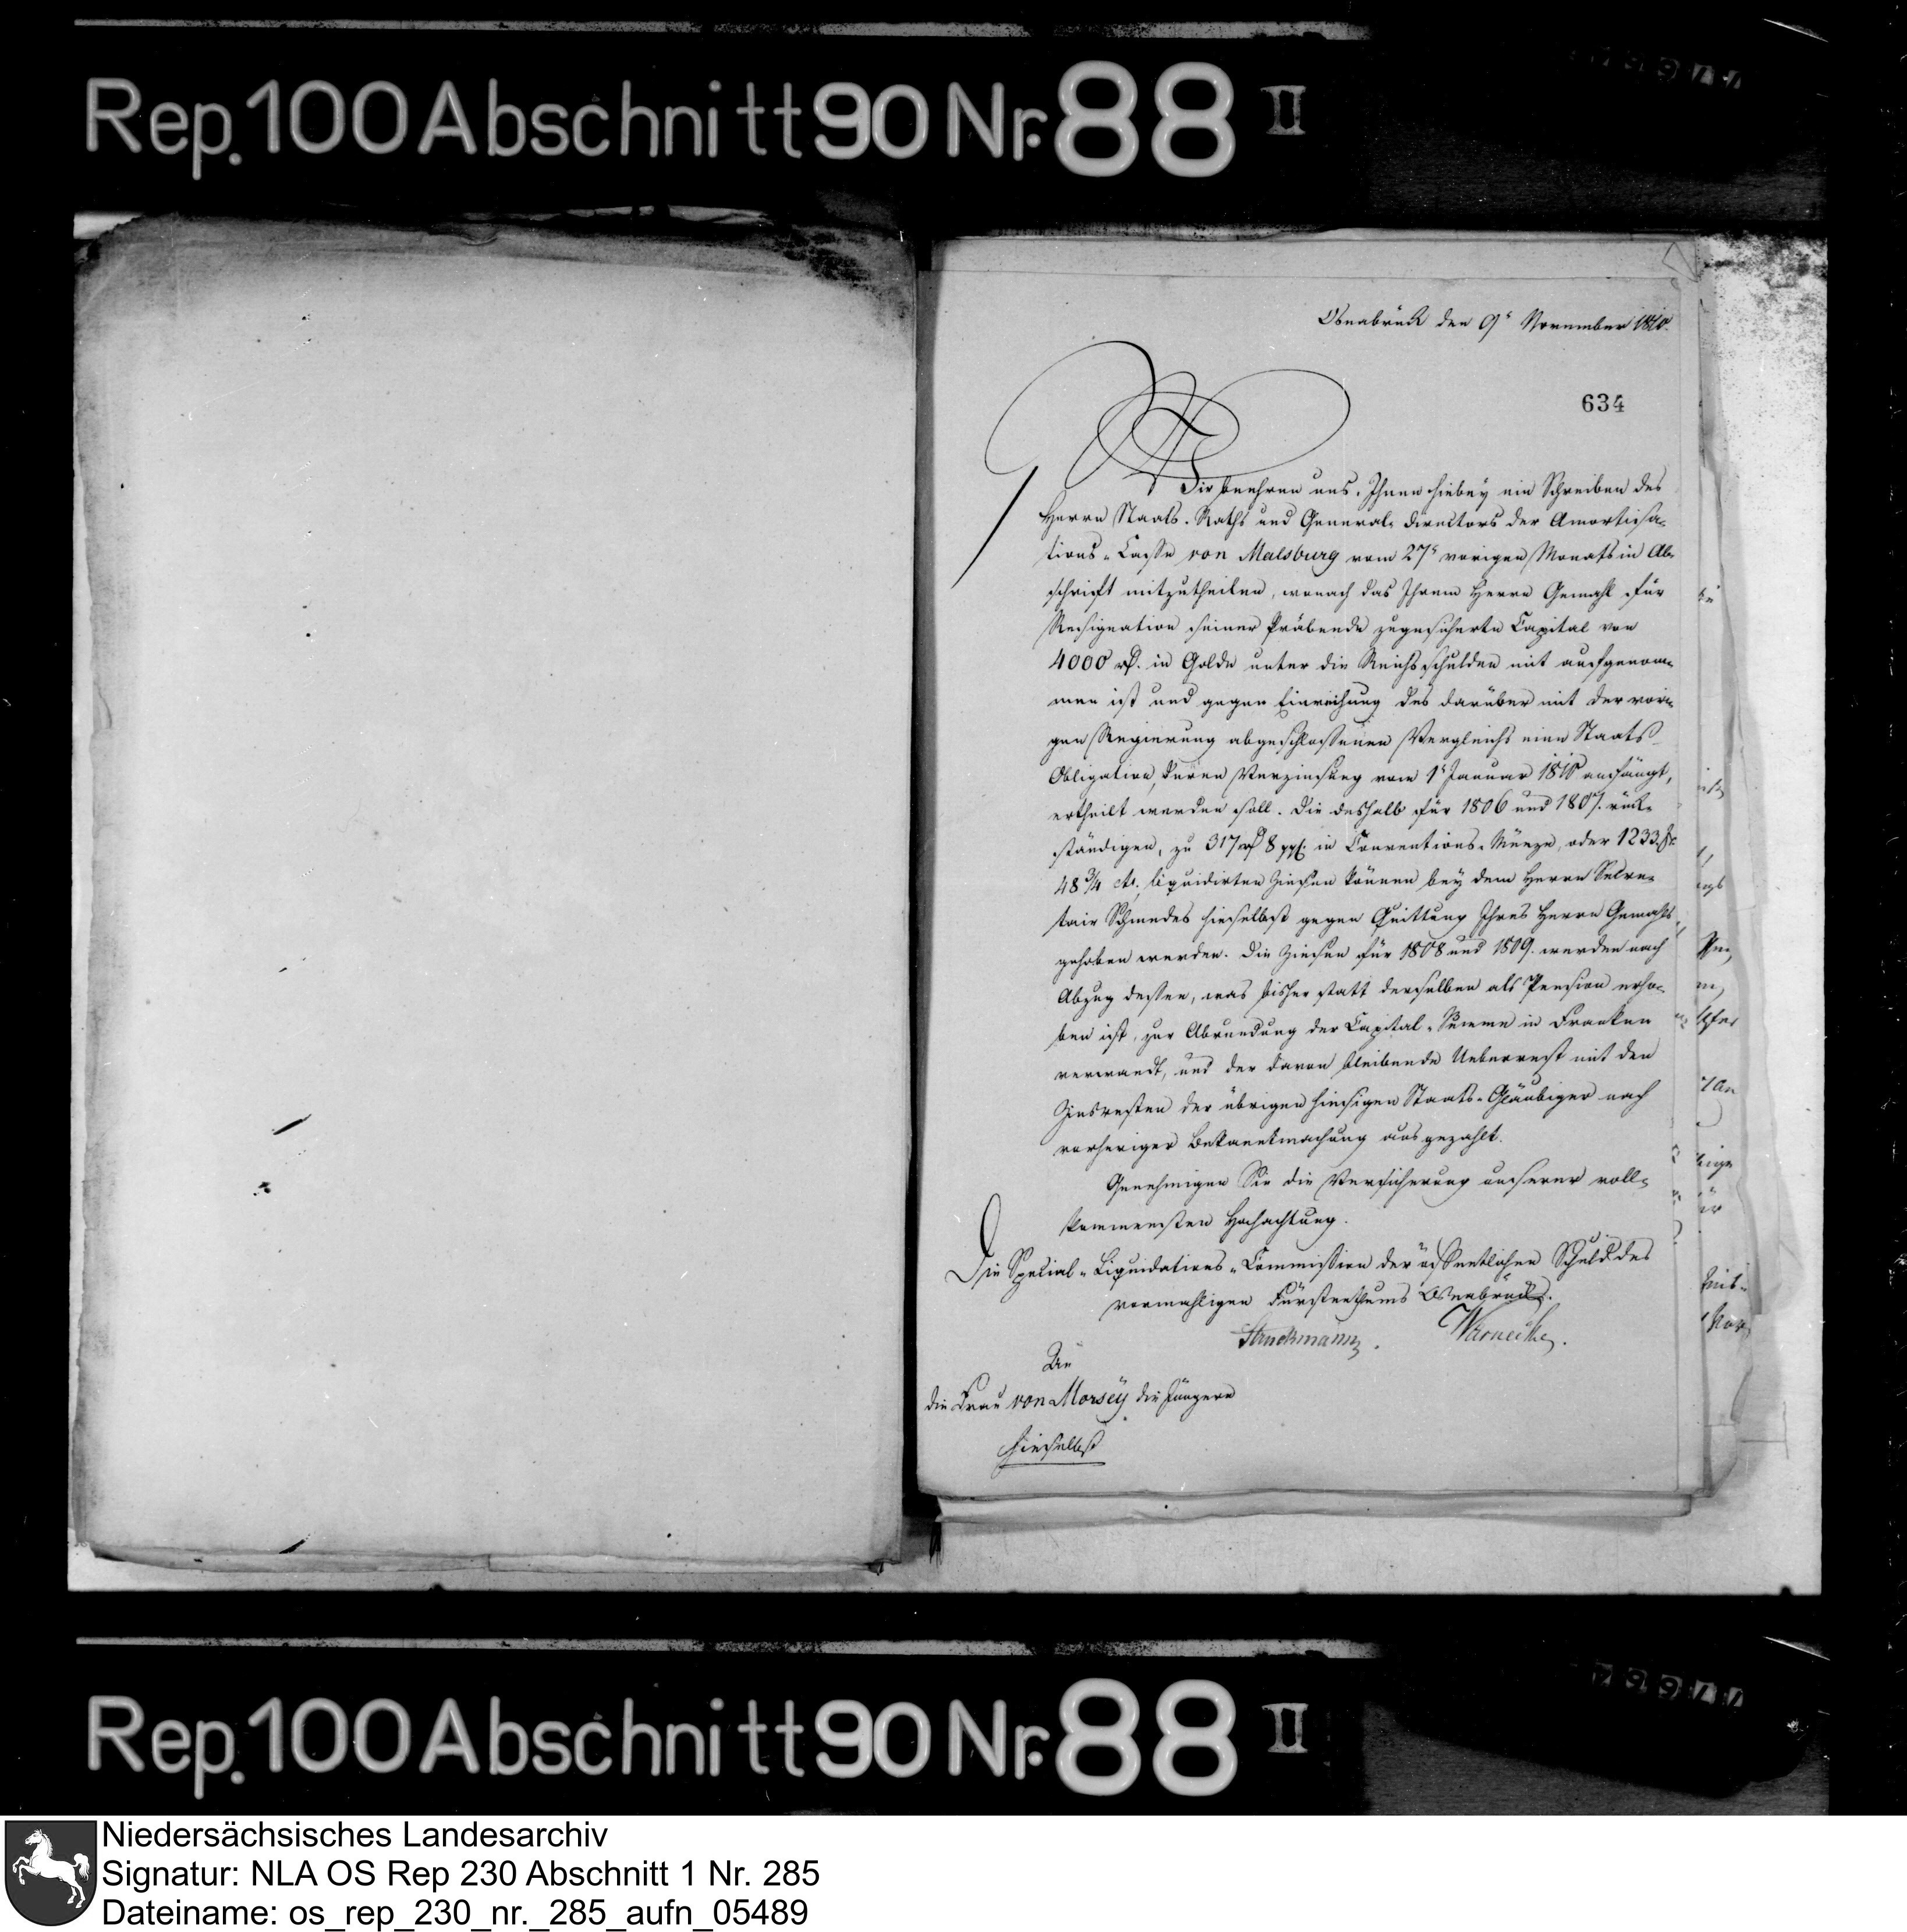 Rep. 100 Abschnitt 90 Nr. 88 II
Osnabrück den 9t November 1810.
634
Wir beehren uns, Ihnen hiebey ein Schreiben des
Herrn Staats-Raths und General-Directors der Amortisa-
tions-Casse von Malsburg vom 27t vorigen Monats in Ab-
schrift mitzutheilen, wonach das Ihrem Herrn Gemahl für
Resignation seiner Präbende zugesicherte Capital von
4000 rt. in Golde unter die Reichsschulden mit aufgenom-
men ist und gegen Einreichung des darüber mit der vori-
gen Regierung abgeschlossenen Vergleichs eine Staats-
Obligation, deren Verzinsung vom 1t Januar 1810 anfängt,
ertheilt werden soll. Die deshalb für 1806 und 1807. rück-
ständigen, zu 317 rt 8 ggl. in Conventions-Münze, oder 1233. fr.
48 3/4 cts. liquidirten Zinsen können bey dem Herrn Secre-
tair Schmedes hieselbst gegen Quittung Ihres Herrn Gemahls
gehoben werden. Die Zinsen für 1808 und 1809. werden nach
Abzug dessen, was bisher statt derselben als Pension erho-
ben ist, zur Abrundung der Capital-Summe in Franken
verwandt, und der davon bleibende Ueberrest mit den
Zinsresten der übrigen hiesigen Staats-Gläubiger nach
vorheriger Bekanntmachung ausgezahlt.
Genehmigen Sie die Versicherung unserer voll-
kommensten Hochachtung.
Die Special-Liquidations-Commission der öffentlichen Schuld des
vormahligen Fürstenthums Osnabrück.
Struckmann. Warnecke.
An
die Frau von Morseÿ die Jüngere
hieselbst
Rep. 100 Abschnitt 90 Nr. 88 II
Niedersächsisches Landesarchiv
Signatur: NLA OS Rep 230 Abschnitt 1 Nr. 285
Dateiname: os_rep_230_nr._285_aufn_05489